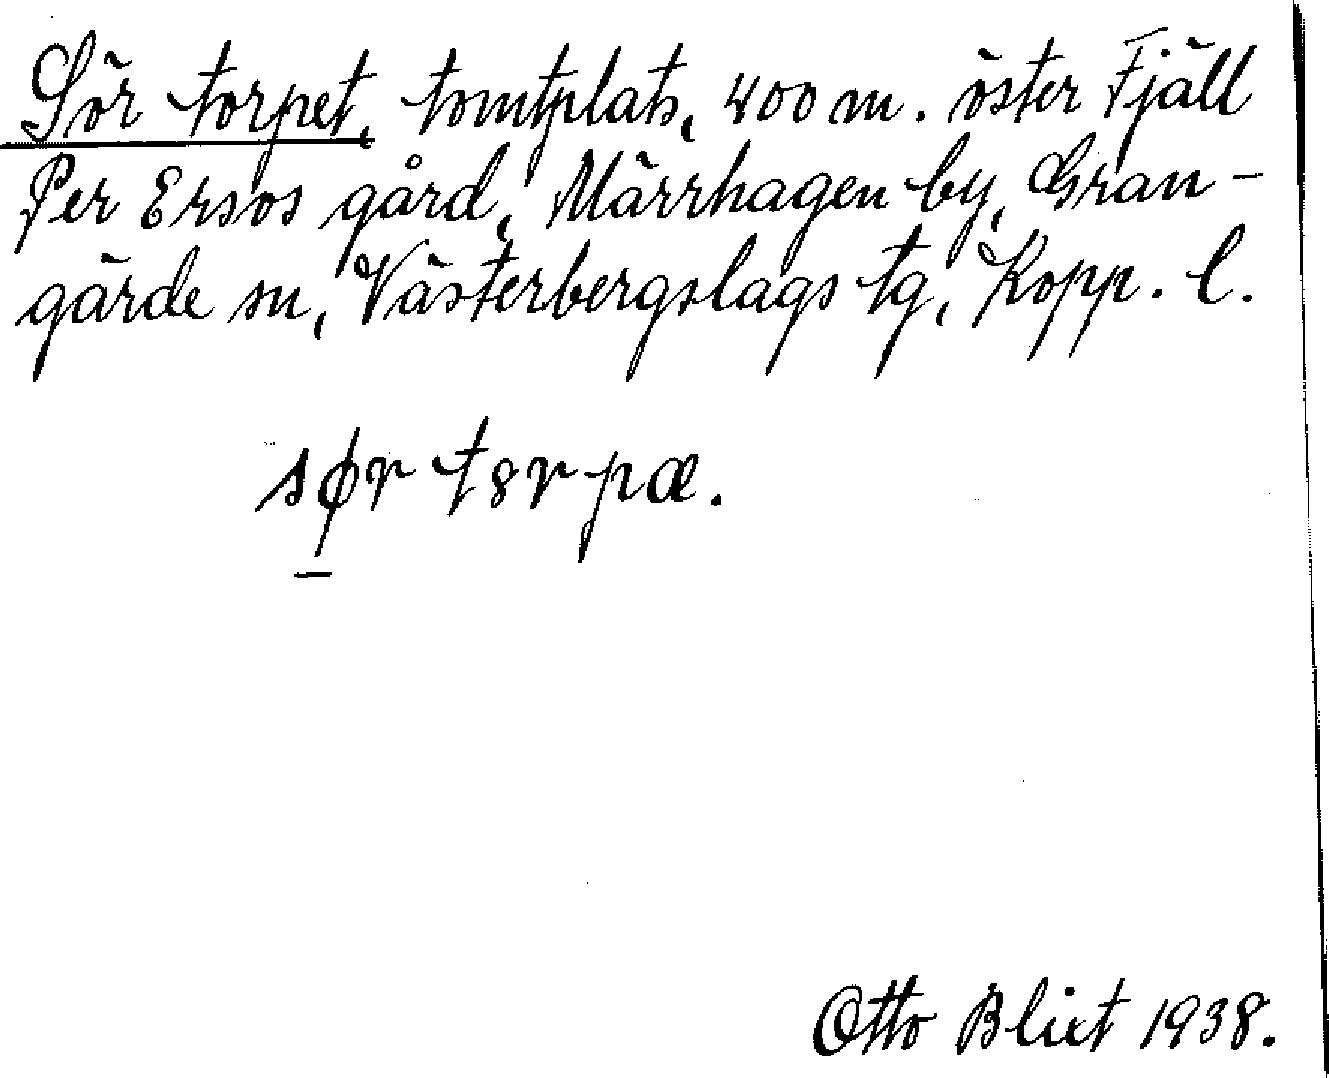 Sör torpet, tomtplats, 400 m. öster Fjäll
Per Ersos gård, Märrhagen by, Gran-
gärde sn, Västerbergslags tg, Kopp. l.
sør t8r pæ.
Otto Blixt 1938.